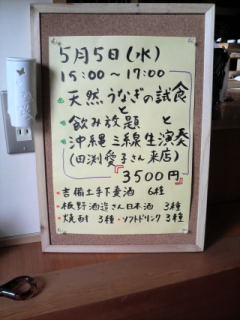 5月5日(水)
15:00～17:00
天然うなぎの試食
と
飲み放題 と
沖縄 三線生演奏
(田渕愛子さん来店)
3500円
・吉備土手下麦酒 6種
・板野酒造さん日本酒 3種
・焼酎 3種・ソフトドリンク 3種